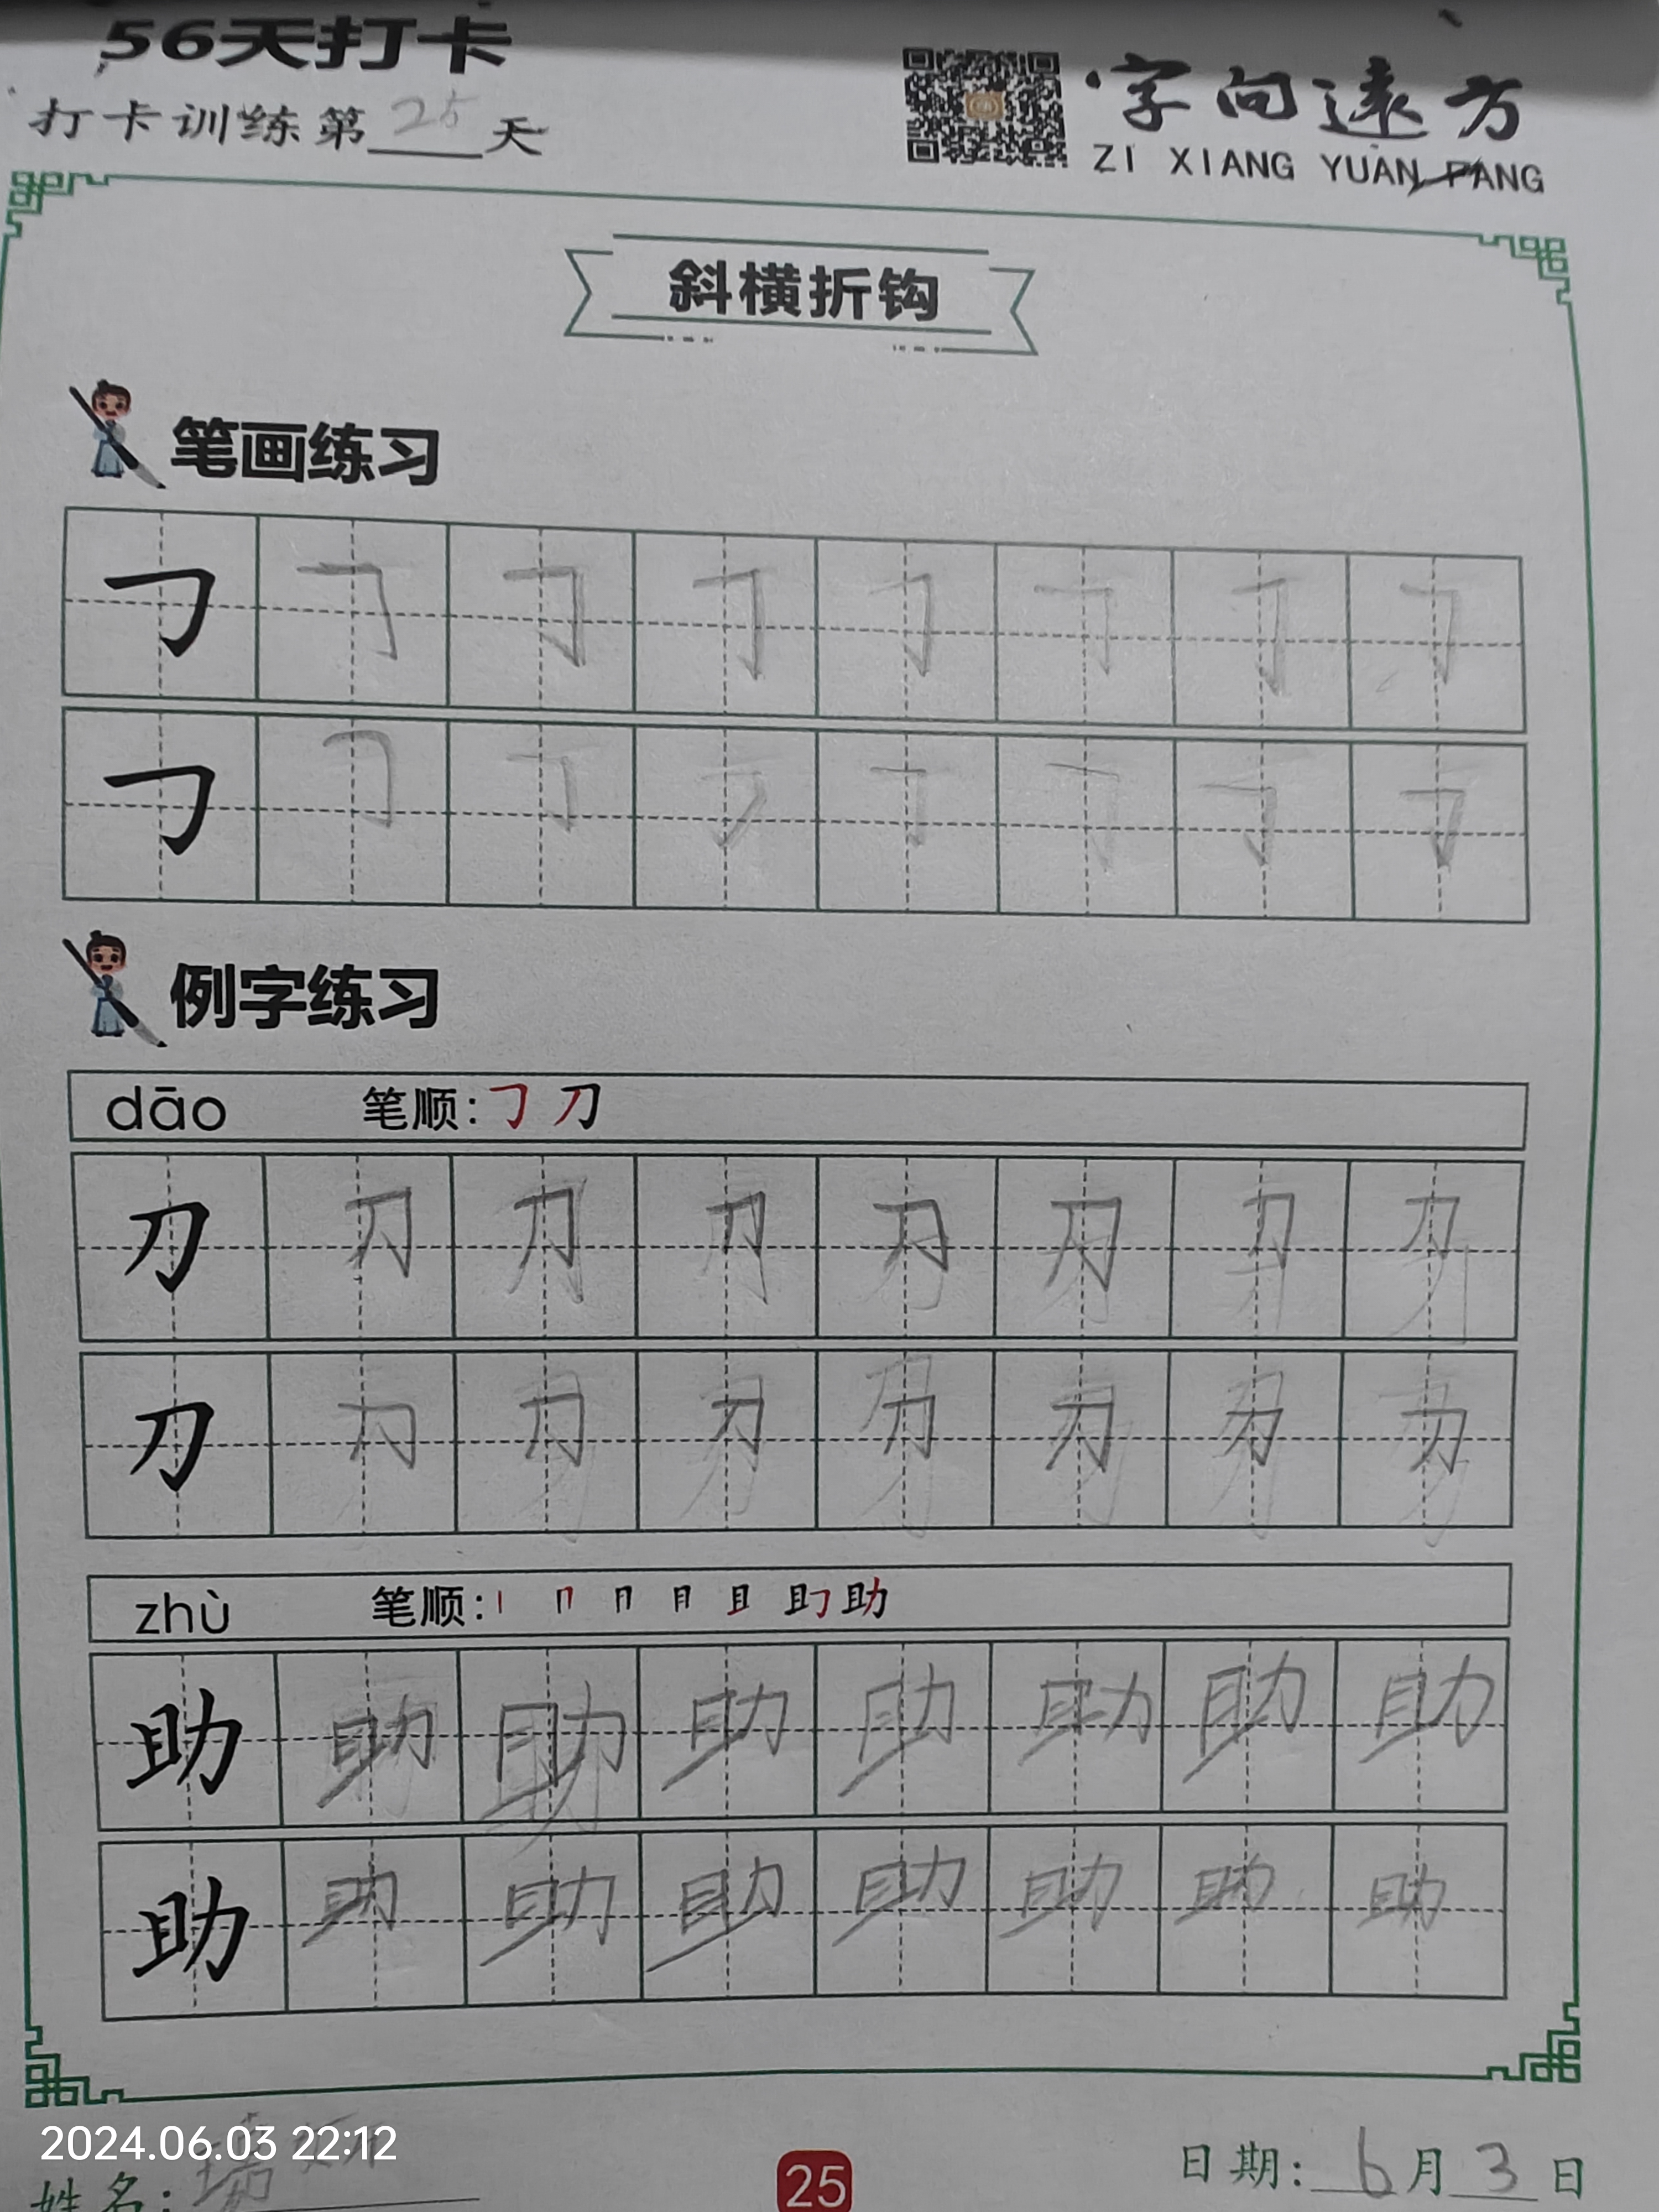 56天打卡
打卡训练第25天
字向远方
ZI XIANG YUAN FANG
斜横折钩
笔画练习
㇆ ㇆ ㇆ ㇆ ㇆ ㇆ ㇆ ㇆
㇆ ㇆ ㇆ ㇆ ㇆ ㇆ ㇆ ㇆
例字练习
dāo 笔顺:㇆ 刀
刀 刀 刀 刀 刀 刀 刀 刀
刀 刀 刀 刀 刀 刀 刀 刀
zhù 笔顺:丨 冂 冃 月 且 助
助 助 助 助 助 助 助 助
助 助 助 助 助 助 助 助
2024.06.03 22:12
姓名:
25
日期:6月3日